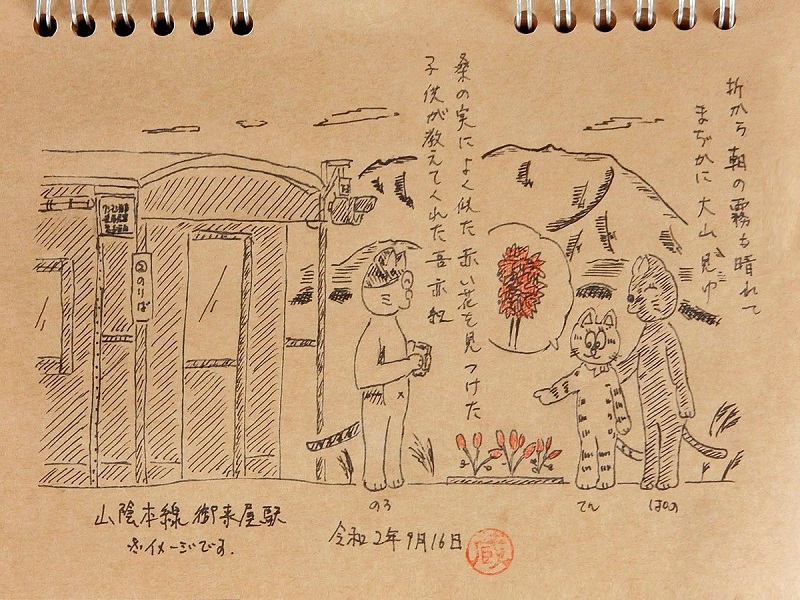 折から朝の霧も晴れて
まぢかに大山見ゆ
桑の実によく似た赤い花を見つけた
子供が教えてくれた吾亦紅
②のりば
のろ
てん
はのの
山陰本線 御来屋駅
※イメージです。
令和2年9月16日
蔵